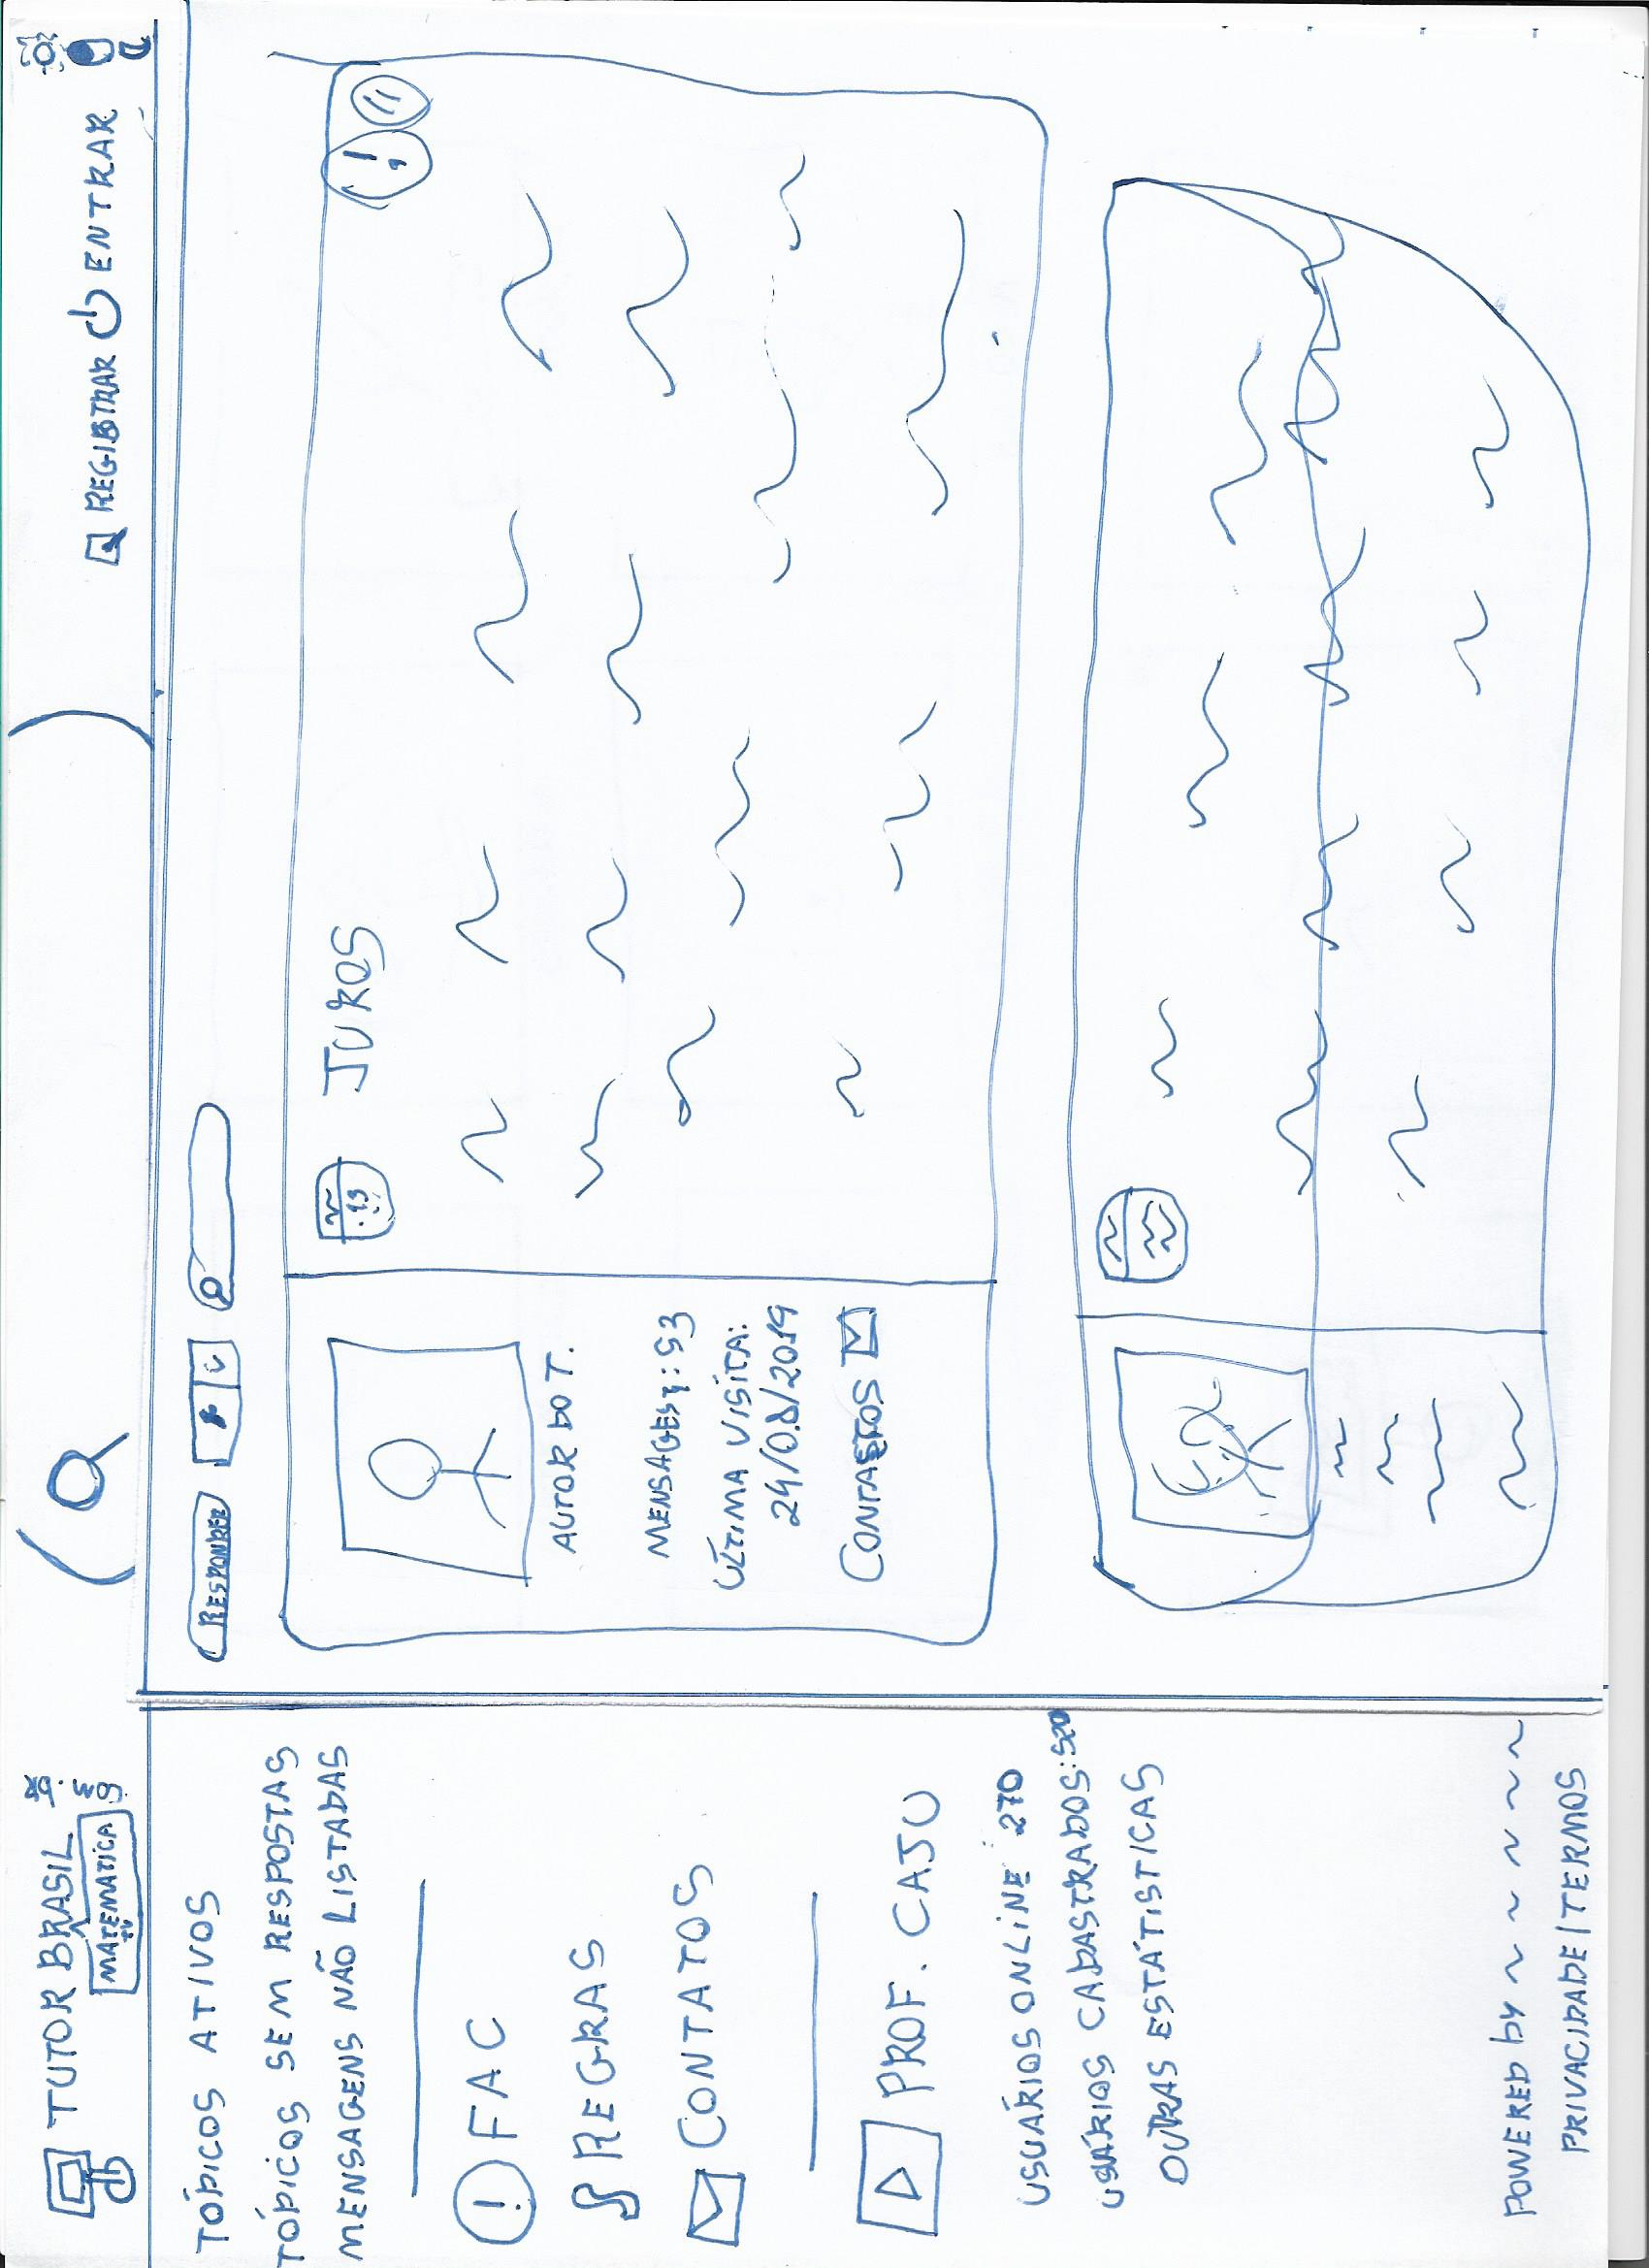 TUTOR BRASIL
MATEMÁTICA
REGISTRAR ENTRAR
TÓPICOS ATIVOS
TÓPICOS SEM RESPOSTAS
MENSAGENS NÃO LISTADAS
! FAC
REGRAS
CONTATOS
PROF. CAJU
USUÁRIOS ONLINE 270
USUÁRIOS CADASTRADOS: 500
OUTRAS ESTÁTISTICAS
POWERED by
PRIVACIDADE | TERMOS
RESPONDER
JUROS
AUTOR DO T.
MENSAGES: 53
ÚLTIMA VISÍTA:
24/08/2019
CONTATOS